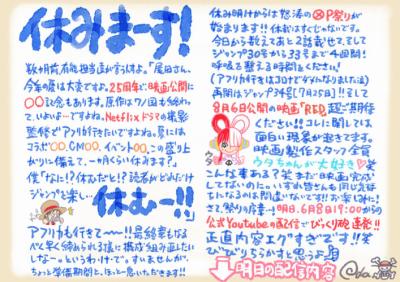 休みまーす!
数ヶ月前、有能担当達が言うんすよ。「尾田さん、
今年の夏は大変ですよ。25周年で、映画公開に
〇〇記念もあります。原作はワノ国も終わっ
て、いよいよ…ですよね。Netflixドラマの撮影
監修でアフリカ行きたいですよね。夏には
コラボ〇〇、CM〇〇、イベント〇〇、この盛り上
がりに備えて、一ヶ月くらい休みます?」
僕「なに!?休むだと!?読者がどれだけ
ジャンプを楽し…
休むー!!」
アフリカも行きてェ〜〜!!最終章もなる
べく早く終われる様に構成組み直したい
しなー。というわけで、すいませんが、
ちょっと準備期間と、ほっと一息いただきます!!
休み明けからは怒涛のOP祭りが
始まります!!休載はすぐじゃないです。
今日から数えてあと2話載せて、そして
ジャンプ30号から33号まで4週間!
呼吸を整える時間をください!
(アフリカ行きはコロナでダメになりました(涙))
再開はジャンプ34号「7月25日」!!そして
8月6日公開の映画「RED」超ご期待
ください!!コレに関しては
面白い現象が起きてます。
映画製作スタッフ全員
ウタちゃんが大好き♡笑
こんな事ある?笑 まだ映画完成
してないのに。いいすか皆さんも同じ気持
ちになるのは間違いないです!!お楽しみに!
さて、祭りの序章…!明日、6月8日19:00からの
公式Youtubeの配信でびっくり砲連発!!
正直内容エグすぎです!!笑
びびりちらかすと思うよ
明日の配信内容